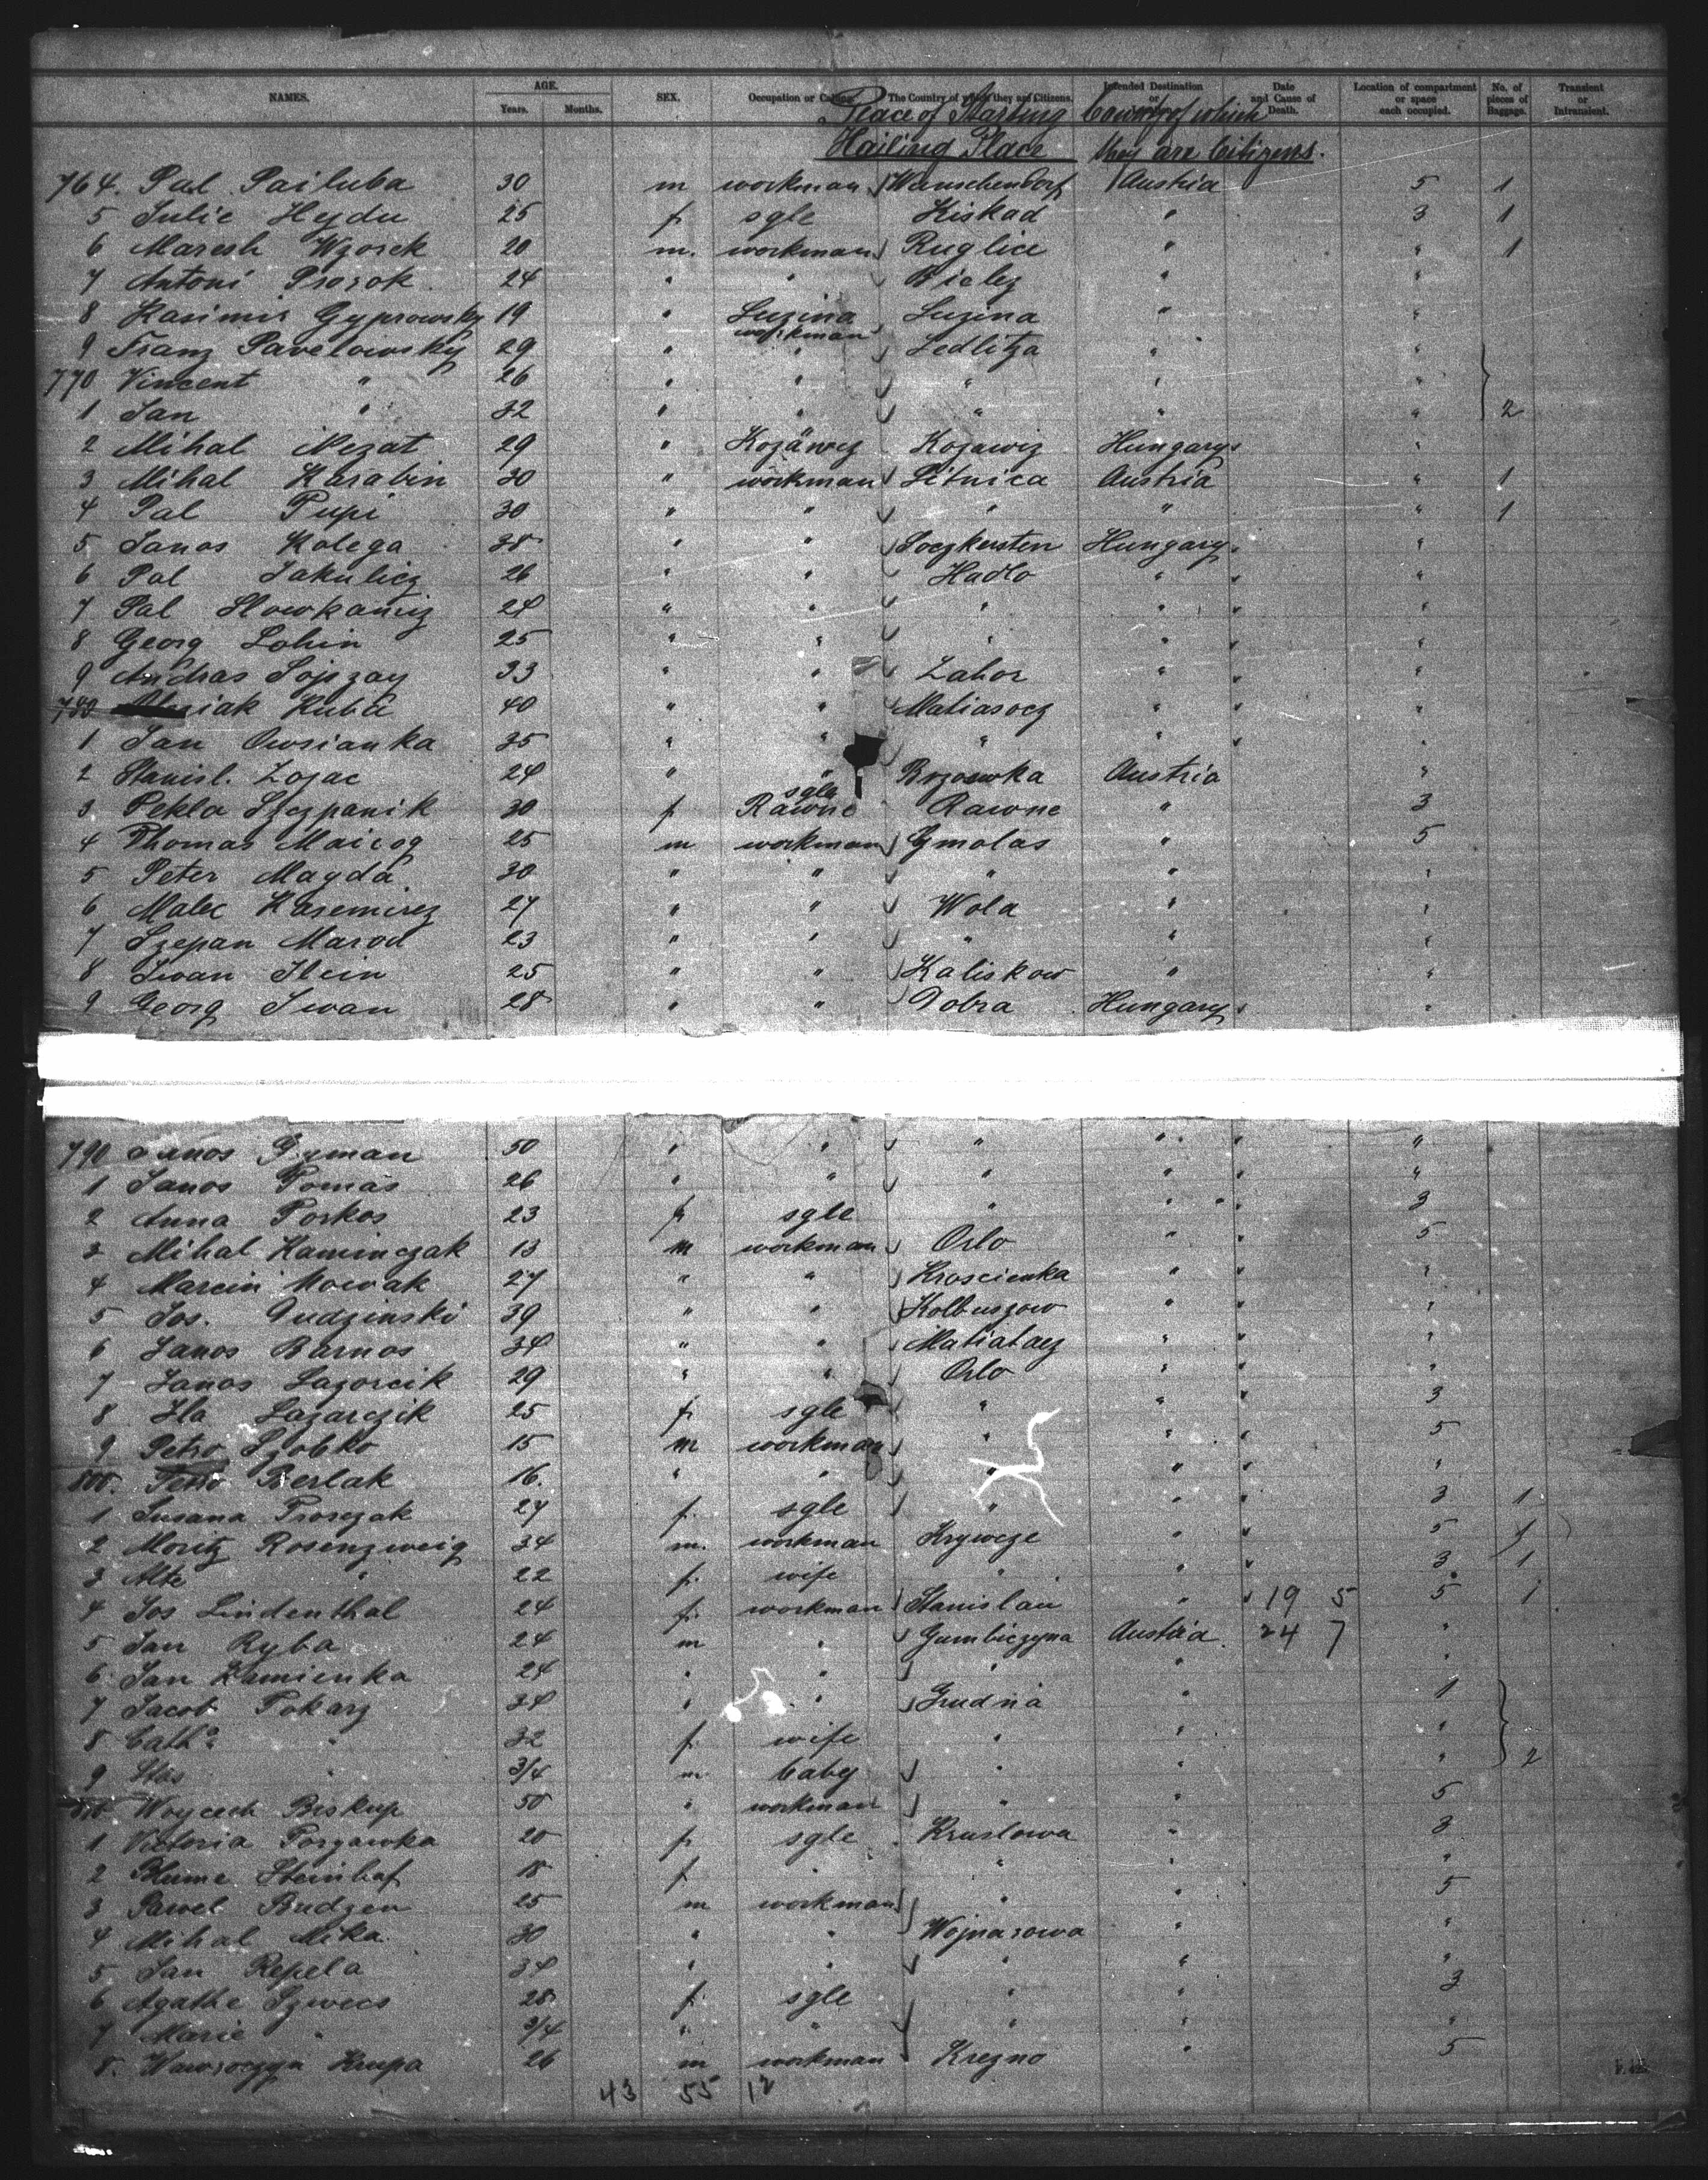 NAMES. AGE. Years. Months. SEX. Occupation or Calling. The Country of which they are Citizens. Intended Destination or Date and Cause of Death. Location of compartment or space each occupied. No. of pieces of Baggage. Transient or Intransient.
Place of Starting Country of which
Hailing Place they are Citizens.
764. Pal Pailuba 30 m workman Wunschendorf Austria 5 1
5 Julie Heydu 25 f sgle Kiskad " 3 1
6 Maresh Wzorek 20 m. workman Ruglice " " 1
7 Antoni Prozok 24 " " Bielez " "
8 Kasimir Gyprowsky 19 " Luzina workman Luzina " "
9 Franz Pavelowsky 29 " " Zedlitza " "
770 Vincent " 26 " " " " "
1 Jan " 32 " " " " " 2
2 Mihal Nezat 29 " Kozäwez Kozawiz Hungary "
3 Mihal Karabin 30 " workman Petnica Austria " 1
4 Pal Pupi 30 " " " " " 1
5 Janos Kolega 38 " " Soczkersten Hungary "
6 Pal Jakulicz 26 " " Hadlo " "
7 Pal Slowkamiz 24 " " " " "
8 Georg Lohin 25 " " " " "
9 Andras Sojszay 33 " " Zahor " "
780 iak Kuba 40 " " Matiasocz " "
1 Jan Owsianka 35 " " " " "
2 Stanisl. Zozac 24 " " Brzozowka Austria "
3 Tekla Szczpanik 30 f sgle Rawne Rawne " 3
4 Thomas Maicog 25 m workman Gmolas " 5
5 Peter Magda 30 " " " " "
6 Malec Kasemirez 27 " " Wola " "
7 Szepan Marod 23 " " " " "
8 Iwan Ilcin 25 " " Kaliskow " "
9 Georg Iwan 28 " " Dobra Hungary "
790 Janos Gyman 50 " " " " "
1 Janos Tomas 26 " " " " "
2 Anna Porkos 23 f sgle " " 3
3 Mihal Kaminczak 13 m workman Orlo " 5
4 Marcin Nowak 27 " " Kroscienka " "
5 Jos. Dudzinski 39 " " Kolbuszow " "
6 Janos Barnos 34 " " Matiatacz " "
7 Janos Lazorcik 29 " " Orlo " "
8 Ila Lazarczik 25 f sgle " " 3
9 Petro Szobko 15 m workman " " 5
800. Petro Berlak 16. " " " " "
1 Susana Prosczak 27 f. sgle " " 3 1
2 Moritz Rosenzweig 34 m. workman Krywcze " 5 1
3 Alte " 22 f. wife " " 3 1
4 Jos Lindenthal 24 f. workman Stanislau " 19 5 5 1
5 Jan Ryba 24 m " Gumbiczyna Austria. 24 7 "
6 Jan Kamienka 24 " " " " "
7 Jacob Pokarz 34 " " Grudna " 1
8 Cath.a " 32 f. wife " " "
9 Stas " 3/4 m. baby " " " 2
810 Woycech Biskup 50 " workman " " 5
1 Victoria Porzawka 20 f. sgle Kruslowa " 3
2 Blume Steinhof 18 f " " " "
3 Pawel Budzen 25 m workman " " 5
4 Mihal Mika 30 " " Wojnarowa " "
5 Jan Repela 34 " " " " "
6 Agathe Szwecs 28 f. sgle " " 3
7 Marie " 3/4 " " " " "
8. Wawroczyn Krupa 26 m workman Krezno " 5
43 55 12